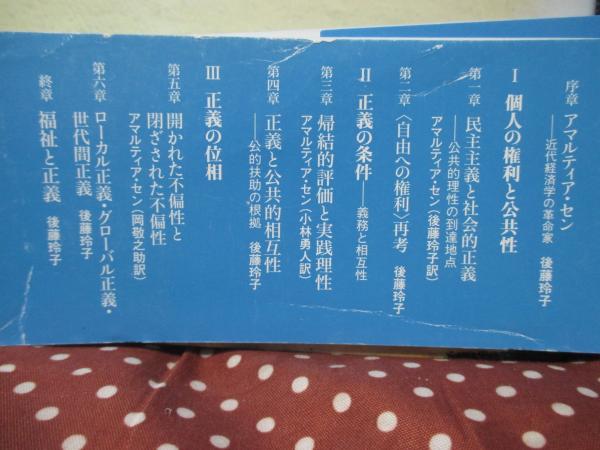 序章 アマルティア・セン
──近代経済学の革命家 後藤玲子
Ⅰ 個人の権利と公共性
第一章 民主主義と社会的正義
──公共的理性の到達地点
アマルティア・セン(後藤玲子訳)
第二章 〈自由への権利〉再考 後藤玲子
Ⅱ 正義の条件──義務と相互性
第三章 帰結的評価と実践理性
アマルティア・セン(小林勇人訳)
第四章 正義と公共的相互性
──公的扶助の根拠 後藤玲子
Ⅲ 正義の位相
第五章 開かれた不偏性と
閉ざされた不偏性
アマルティア・セン(岡敬之助訳)
第六章 ローカル正義・グローバル正義・
世代間正義 後藤玲子
終章 福祉と正義 後藤玲子